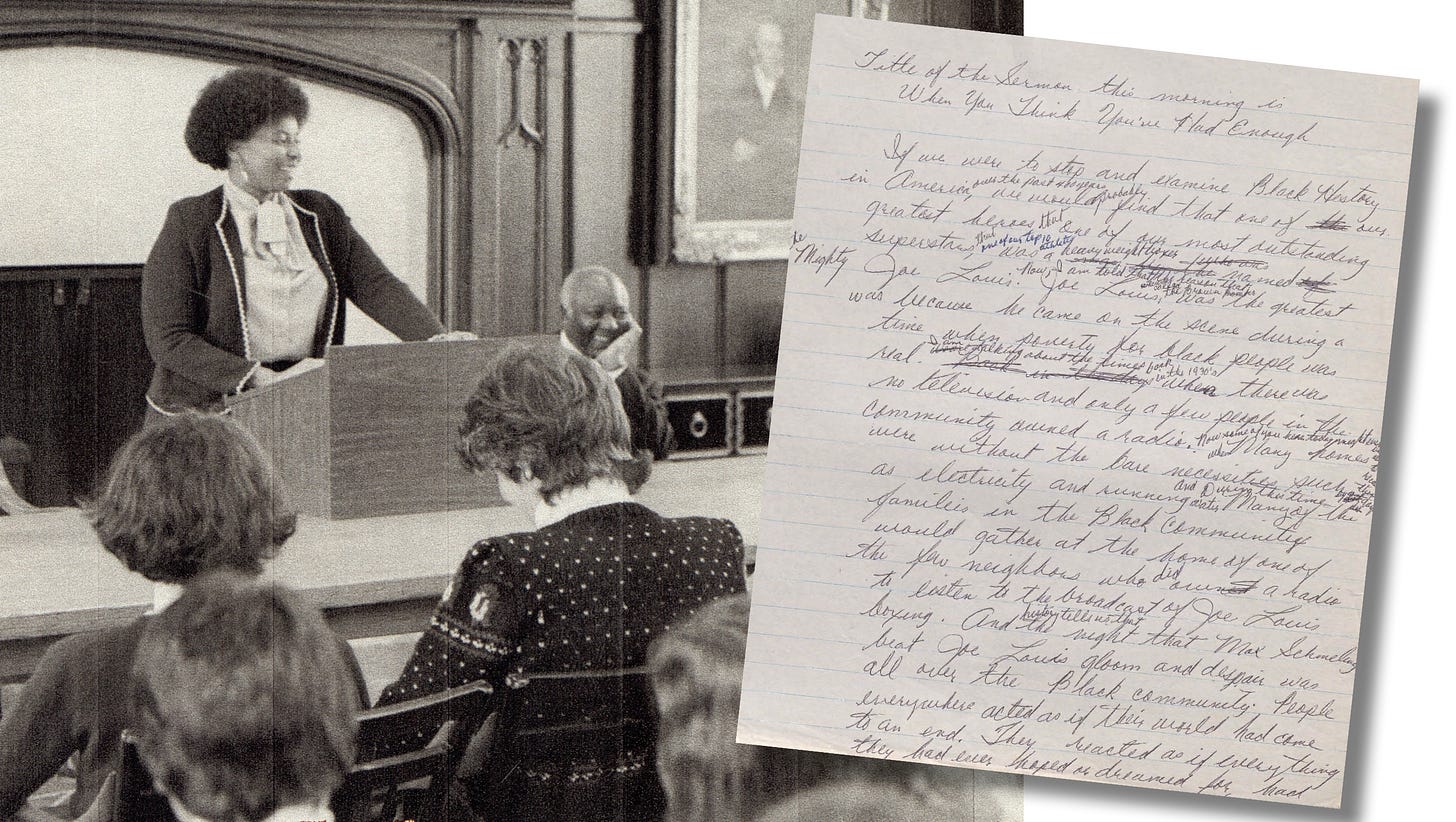 Title of the Sermon this morning is
When You Think You've Had Enough
If we were to stop and examine Black History
over the past 400 years probably
in America, we would find that one of the our
greatest heroes that one of our most outstanding
superstars, that one of our top 10 athlete was a heavy weight boxer named
the Mighty
Joe Louis. Now, I am told that the reason that
Joe Louis, was the greatest
was because he came on the scene during a
time when poverty for black people was
real. talking about the times back in the 1930's when there was
no television and only a few people in the
community owned a radio. Now some of you here today might
when Many homes
were without the bare necessities such
as electricity and running water and During this time Many of the
families in the Black communities
would gather at the home of one of
the few neighbors who did own a radio
to listen to the broadcast of Joe Louis
boxing. And history tells us that the night that Max Schmeling
beat Joe Louis gloom and despair was
all over the Black community. People
everywhere acted as if their world had come
to an end. They reacted as if everything
they had ever hoped or dreamed for, had